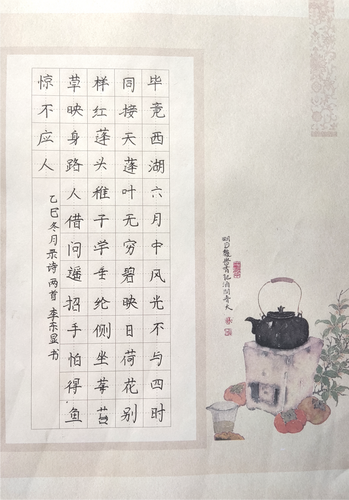 毕竟西湖六月中风光不与四时
同接天莲叶无穷碧映日荷花别
样红蓬头稚子学垂纶侧坐莓苔
草映身路人借问遥招手怕得鱼
惊不应人
乙巳冬月录诗两首 李东显书